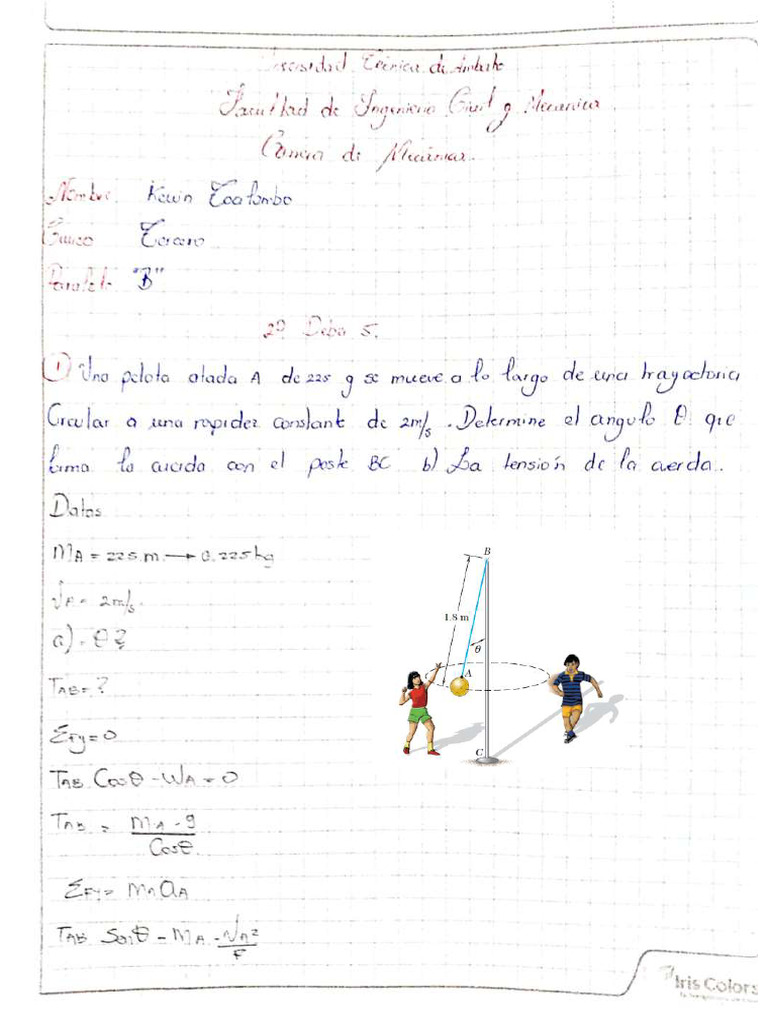 Técnica de Ambato
Facultad de Ingenieria Civil y Mecanica.
Carrera de Mecánica.
Nombre: Kevin Toalombo
Curso Tercero
Paralelo "B"
Deber 5.
① Una pelota atada A de 225 g se mueve a lo largo de una trayectoria
Circular a una rapidez constante de 2m/s. Determine el angulo θ que
forma la cuerda con el poste BC b) La tensión de la cuerda.
Datos
MA = 225.m. → 0.225kg
VA = 2m/s.
a) = θ?
TAB = ?
ΣFy = 0
TAB Cosθ - WA = 0
TAB = MA · g / Cosθ
ΣFy = MA aA
TAB Senθ = MA · VA² / r
B
1.8 m
θ
A
C
Iris Colors